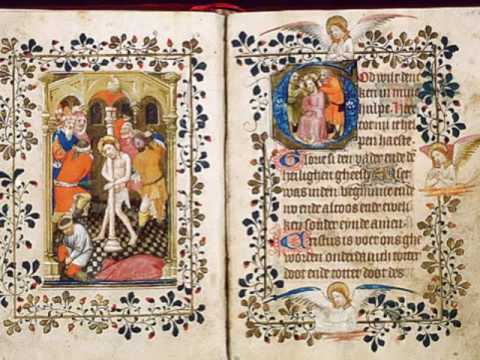 God wilt den
ken in mine
hulpe Here
com mi te hel
pen haeste
Glorie si den vader ende de
heilighen gheest Als et
was inden beghinne ende
nu ende altoos ende ewel
ken sonder eynde amen
Cristus is voer ons ghe
worden onderdanich totter
doot ende totter doot des